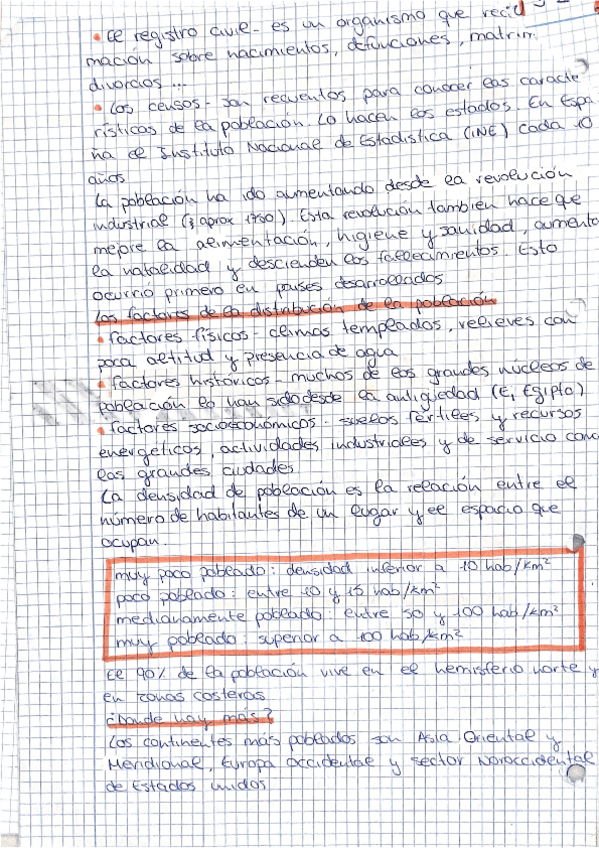 • El registro civil - es un organismo que recib
mación sobre nacimientos, defunciones, matrim
divorcios ...
• Los censos - son recuentos para conocer las caracte
rísticas de la población. Lo hacen los estados. En Espa
ña el Instituto Nacional de Estadística (INE) cada 10
años
La población ha ido aumentando desde la revolución
industrial (aprox 1750). Esta revolución tambien hace que
mejore la alimentación, higiene y sanidad, aumento
la natalidad y descienden los fallecimientos. Esto
ocurrió primero en países desarrollados
Los factores de la distribución de la población
• factores físicos - climas templados, relieves con
poca altitud y presencia de agua
• factores históricos - muchos de los grandes núcleos de
población lo han sido desde la antigüedad (Ej Egipto)
• factores socioeconómicos - suelos fértiles y recursos
energéticos, actividades industriales y de servicio como
las grandes ciudades
La densidad de población es la relación entre el
número de habitantes de un lugar y el espacio que
ocupan.
muy poco poblado: densidad inferior a 10 hab/km²
poco poblado: entre 10 y 15 hab/km²
medianamente poblado: entre 50 y 100 hab/km²
muy poblado: superior a 100 hab/km²
El 90% de la población vive en el hemisferio norte y
en zonas costeras
¿Donde hay más?
Los continentes más poblados son Asia Oriental y
Meridional, Europa Occidental y sector Noroccidental
de Estados Unidos